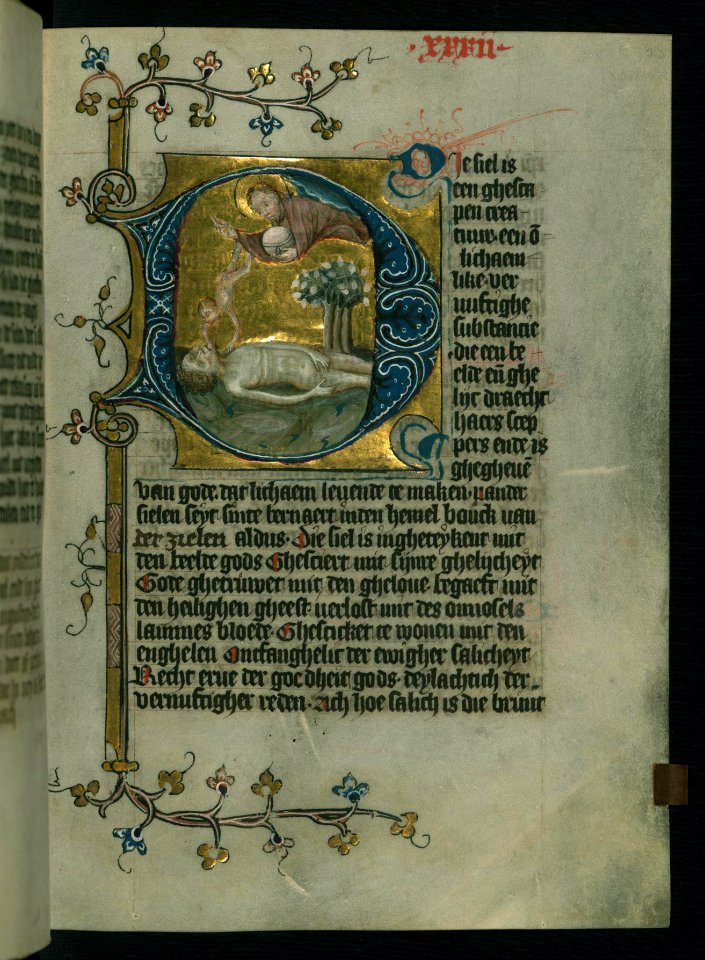 xxvii
Die siel is
een ghesca
pen crea
tuur een õ
lichaem
like ver
nuftighe
substancie
die een be
elde eñ ghe
lijc draecht
haers scep
pers ende is
ghegheuẽ
van gode dat lichaem leuende te maken vander
sielen seyt sinte bernaert inden hemel bouck van
der zielen aldus. Die siel is ingheteykent mit
den beelde gods Ghesciert mit sijnre ghelijcheyt
Gode ghetruwet mit den gheloue begaeft mit
den heilighen gheest verlost mit des onnosels
lammes bloede Ghescicket te wonen mit den
enghelen Ontfanghelic der ewigher salicheyt
Recht erue der goedheit gods deylachtich der
vernuftigher reden. Ach hoe salich is die bruut